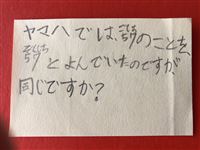 ヤマハでは、のことを、
とよんでいたのですが、
同じですか?